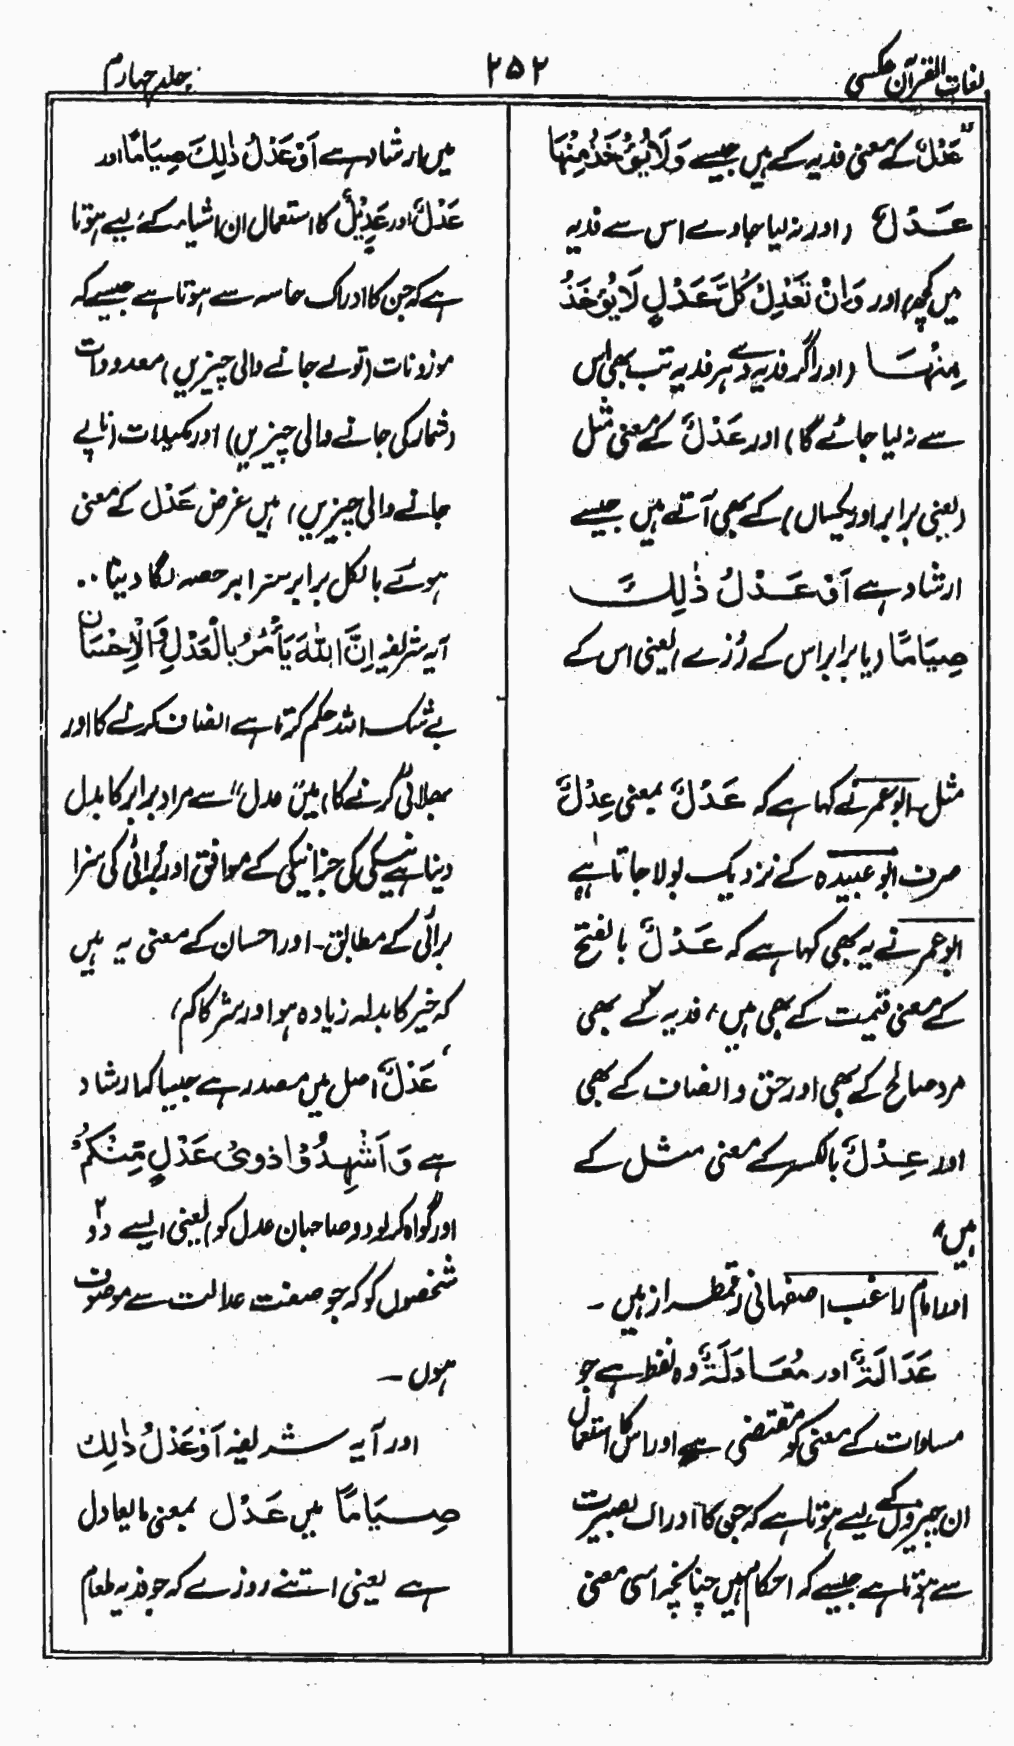 لغات القرآن عکسی
۲۵۲
جلد چہارم
عَدْلٌ کے معنی فدیہ کے ہیں جیسے وَلَا یُؤْخَذُ مِنْهَا
عَدْلٌ (اور نہ لیا جاوے اس سے فدیہ
میں کچھ) اور وَاِنْ تَعْدِلْ كُلَّ عَدْلٍ لَا یُؤْخَذْ
مِنْهَا (اور اگر فدیہ دے ہر فدیہ تب بھی اس
سے نہ لیا جائے گا) اور عَدْلٌ کے معنی مثل
(یعنی برابر اور یکساں) کے بھی آتے ہیں جیسے
ارشاد ہے اَوْ عَدْلُ ذٰلِكَ
صِیَامًا (یا برابر اس کے روزے) یعنی اس کے
مثل۔ ابو عمر نے کہا ہے کہ عَدْلٌ بمعنی عِدْلٌ
صرف ابو عبیدہ کے نزدیک بولا جاتا ہے
ابو عمر نے یہ بھی کہا ہے کہ عَدْلٌ بالفتح
کے معنی قیمت کے بھی ہیں، فدیہ کے بھی
مرد صالح کے بھی اور حق و انصاف کے بھی
اور عِدْلٌ بالکسر کے معنی مثل کے
ہیں،
اور امام راغب اصفہانی رقمطراز ہیں ۔
عَدَالَةٌ اور مُعَادَلَةٌ وہ لفظ ہے جو
مساوات کے معنی کو مقتضی ہے اور اس کا استعمال
ان چیزوں کے لیے ہوتا ہے کہ جن کا ادراک بصیرت
سے ہوتا ہے جیسے کہ احکام ہیں چنانچہ اسی معنی
میں ارشاد ہے اَوْ عَدْلُ ذٰلِكَ صِیَامًا اور
عَدْلٌ اور عَدِیْلٌ کا استعمال ان اشیاء کے لیے ہوتا
ہے کہ جن کا ادراک حاسہ سے ہوتا ہے جیسے کہ
موزونات (تولے جانے والی چیزیں) معدودات
(شمار کی جانے والی چیزیں) اور مکیلات (ناپے
جانے والی چیزیں) ہیں غرض عَدْل کے معنی
ہوئے بالکل برابر سرابر حصہ لگا دینا ۰۰
آیہ شریفہ اِنَّ اللهَ یَأْمُرُ بِالْعَدْلِ وَالْاِحْسَانِ
بے شک اللہ حکم کرتا ہے انصاف کرنے کا اور
بھلائی کرنے کا) میں "عدل" سے مراد برابر کا بدل
دینا ہے نیکی کی جزا نیکی کے موافق اور برائی کی سزا
برائی کے مطابق۔ اور احسان کے معنی یہ ہیں
کہ خیر کا بدلہ زیادہ ہو اور شر کا کم،
عَدْلٌ اصل میں مصدر ہے جیسا کہ ارشاد
ہے وَ اَشْهِدُوْا ذَوَیْ عَدْلٍ مِّنْكُمْ
اور گواہ کر لو دو صاحبان عدل کو) یعنی ایسے دو
شخصوں کو کہ جو صفت عدالت سے موصوف
ہوں ۔
اور آیہ شریفہ اَوْ عَدْلُ ذٰلِكَ
صِیَامًا میں عَدْل بمعنی مایعادل
ہے یعنی اتنے روزے کہ جو فدیہ طعام